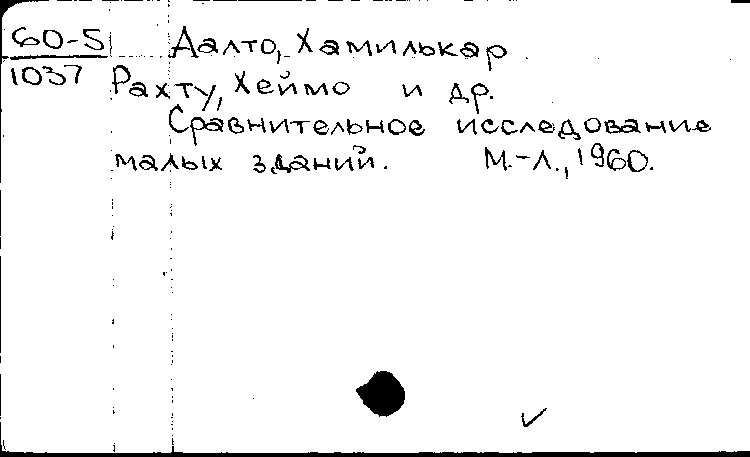 60-5 Аалто, Хамилькар
1037 Рахту, Хеймо и др.
Сравнительное исследование
малых зданий. М.-Л., 1960.